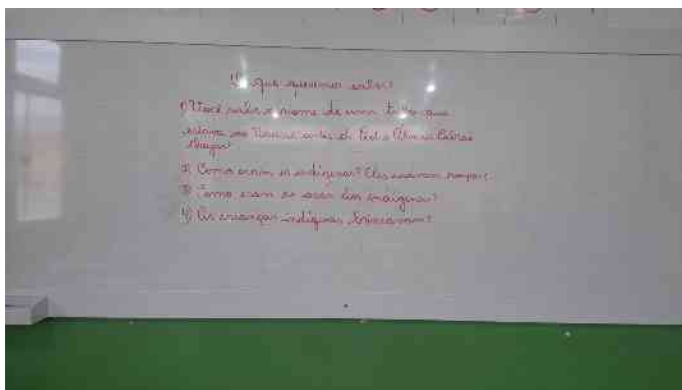 O que queremos saber?
1) Você sabe o nome de uma que
estava no Brasil antes de Pedro Álvares Cabral
chegar?
2) Como eram os indígenas? Eles usavam roupas?
3) Como eram as casas dos indígenas?
4) As crianças indígenas brincavam?